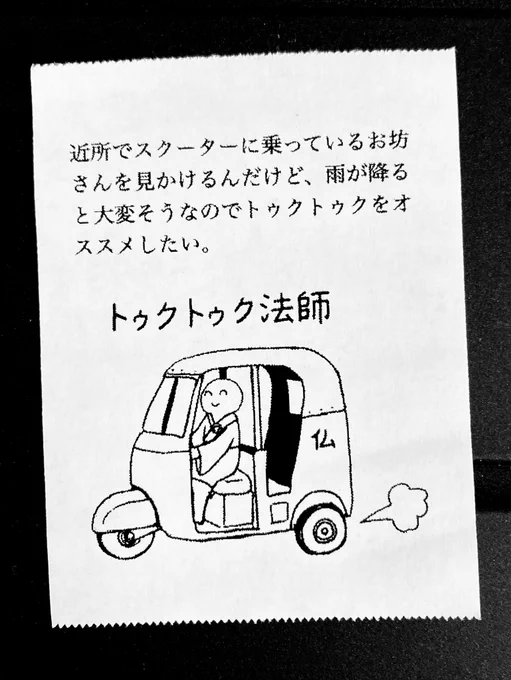 近所でスクーターに乗っているお坊
さんを見かけるんだけど、雨が降る
と大変そうなのでトゥクトゥクをオ
ススメしたい。
トゥクトゥク法師
仏